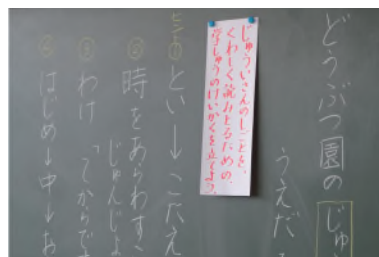 どうぶつ園のじゅ
うえだ
じゅういさんのしごとを、
くわしく読みとるための、
学しゅうのけいかくを立てよう。
① とい→こたえ
② 時をあらわす
じゅんじょ
③ わけ 「てからです
④ はじめ→中→お